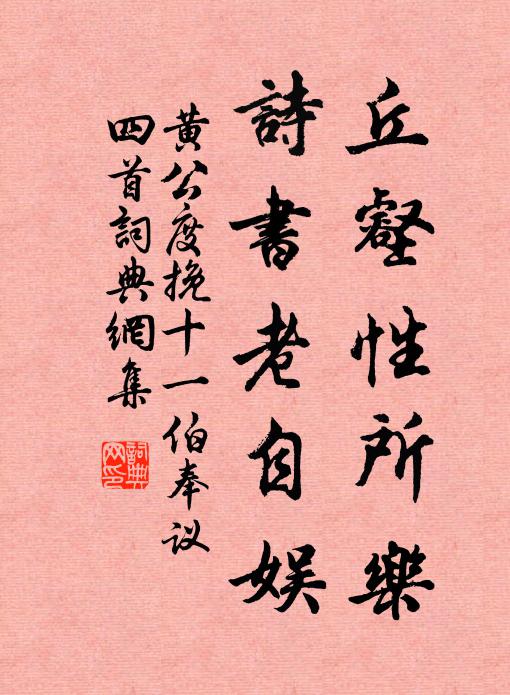 丘壑性所樂
詩書老自娛
黃公度挽十一伯奉议
四首詞典網集
詞典
网印